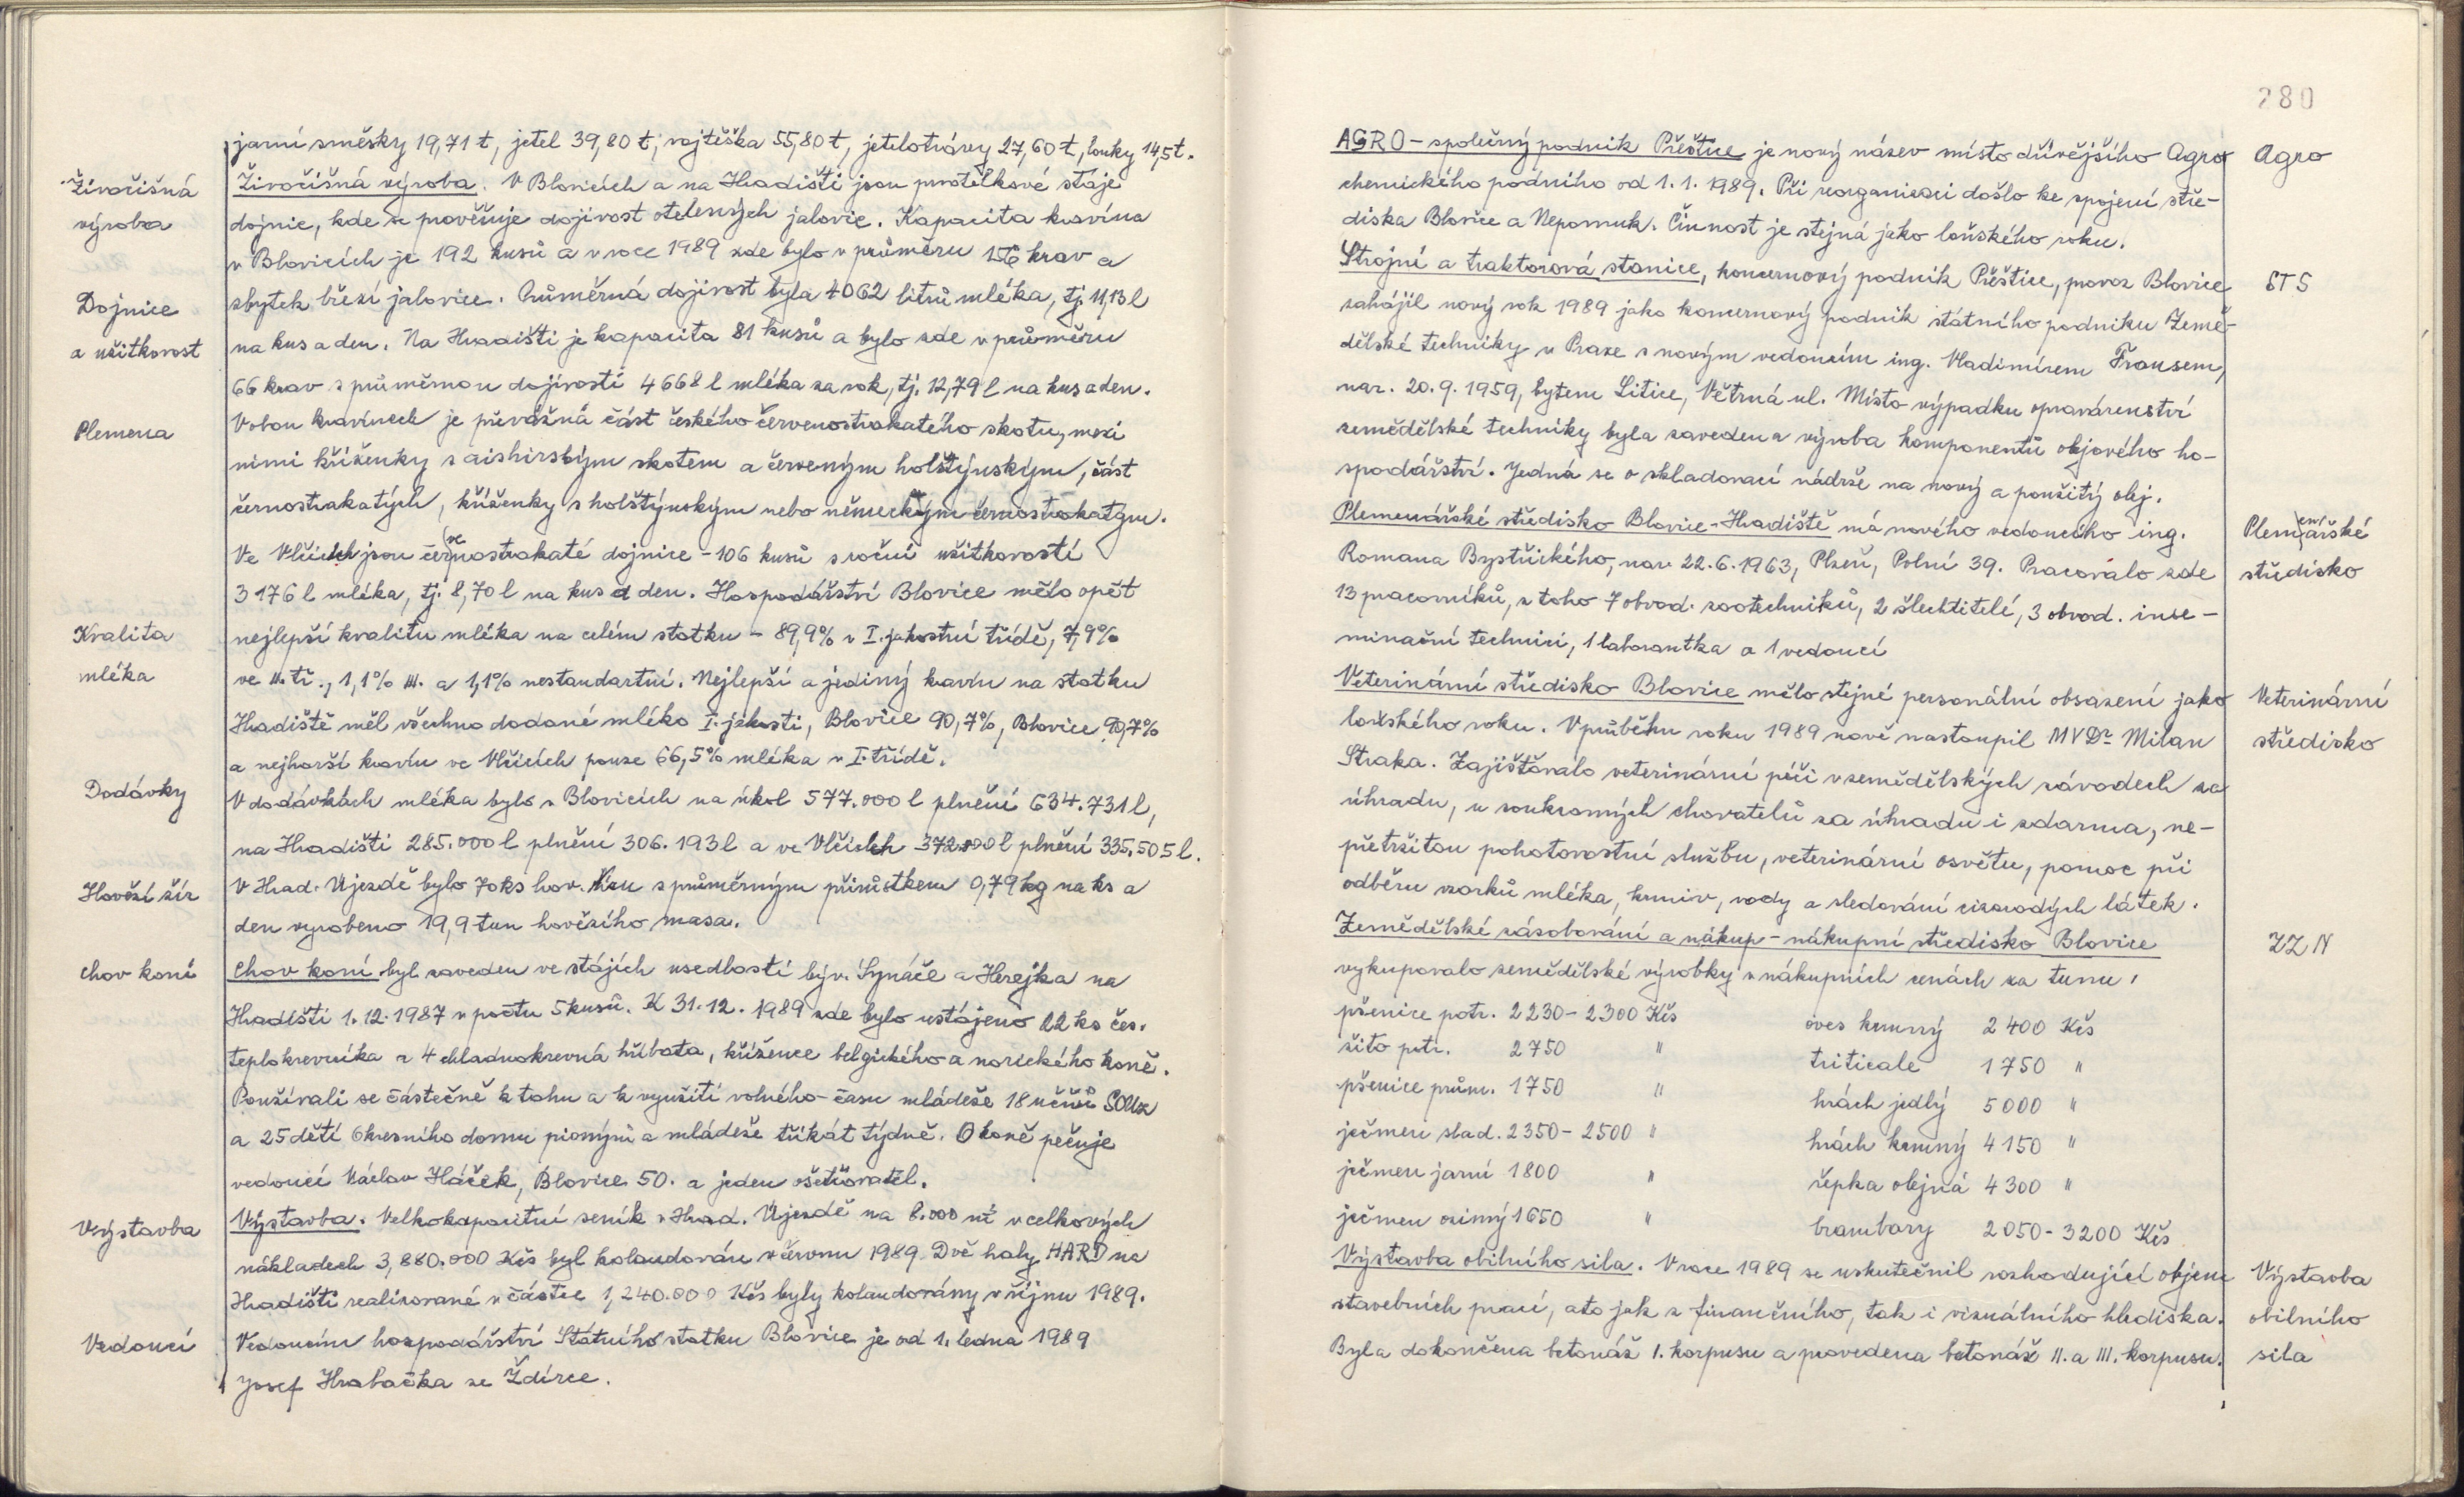 jarní směsky 19,71 t, jetel 39,80 t, vojtěška 55,80 t, jetelotrávy 27,60 t, louky 14,5 t.
Živočišná
výroba
Živočišná výroba. V Blovicích a na Hradišti jsou prvotelkové stáje
dojnic, kde se prověřuje dojivost otelených jalovic. Kapacita kravína
v Blovicích je 192 kusů a v roce 1989 zde bylo v průměru 156 krav a
Dojnice
a užitkovost
zbytek březí jalovice. Průměrná dojivost byla 4062 litrů mléka, tj. 11,13 l
na kus a den. Na Hradišti je kapacita 81 kusů a bylo zde v průměru
66 krav s průměrnou dojivostí 4668 l mléka za rok, tj. 12,79 l na kus a den.
Plemena
V obou kravínech je převážná část českého červenostrakatého skotu, mezi
nimi kříženky s aishirským skotem a červeným holštýnským, část
černostrakatých, kříženky s holštýnským nebo německým černostrakatým.
Ve Vlčicích jsou červenostrakaté dojnice - 106 kusů s roční užitkovostí
3176 l mléka, tj. 8,70 l na kus a den. Hospodářství Blovice mělo opět
Kvalita
mléka
nejlepší kvalitu mléka na celém statku - 89,9% v I. jakostní třídě, 7,9%
ve II. tř., 1,1% III. a 1,1% nestandartní. Nejlepší a jediný kravín na statku
Hradiště měl všechno dodané mléko I. jakosti, Blovice 90,7%, Blovice 90,7%
a nejhorší kravín ve Vlčicích pouze 66,5% mléka v I. třídě.
Dodávky
V dodávkách mléka bylo v Blovicích na úkol 577.000 l plnění 634.731 l,
na Hradišti 285.000 l plnění 306.193 l a ve Vlčicích 372.000 l plnění 335.505 l.
Hovězí žír
V Hrad. Újezdě bylo 70 ks hov. žíru s průměrným přírůstkem 0,79 kg na ks a
den vyrobeno 19,9 tun hovězího masa.
Chov koní
Chov koní byl zaveden ve stájích usedlostí býv. Synáče a Herejka na
Hradišti 1.12.1987 v počtu 5 kusů. K 31.12.1989 zde bylo ustájeno 22 ks čes.
teplokrevníka a 4 chladnokrevná hříbata, křížence belgického a norického koně.
Používali se částečně k tahu a k využití volného času mládeže 18 učňů SOUz
a 25 dětí Okresního domu pionýrů a mládeže třikát týdně. O koně pečuje
vedoucí Václav Háček, Blovice 50. a jeden ošetřovatel.
Výstavba
Výstavba. Velkokapacitní seník v Hrad. Újezdě na 8.000 m³ v celkových
nákladech 3,880.000 Kčs byl kolaudován v červnu 1989. Dvě haly HARD na
Hradišti realizované v částce 1,240.000 Kčs byly kolaudovány v říjnu 1989.
Vedoucí
Vedoucím hospodářství Státního statku Blovice je od 1. ledna 1989
Josef Hrabačka ze Ždírce.
280
AGRO - společný podnik Přeštice je nový název místo dřívějšího Agro
Agro
chemického podniku od 1.1.1989. Při reorganizaci došlo ke spojení stře-
diska Blovice a Nepomuk. Činnost je stejná jako loňského roku.
Strojní a traktorová stanice, koncernový podnik Přeštice, provoz Blovice
STS
zahájil nový rok 1989 jako koncernový podnik státního podniku Země-
dělské techniky v Praze s novým vedoucím ing. Vladimírem Frousem,
nar. 20.9.1959, bytem Litice, Větrná ul. Místo výpadku opravárenství
zemědělské techniky byla zavedena výroba komponentů olejového ho-
spodářství. Jedná se o skladovací nádrže na nový a použitý olej.
Plemenářské středisko Blovice-Hradiště má nového vedoucího ing.
Plemenářské
středisko
Romana Bystřického, nar. 22.6.1963, Plzeň, Polní 39. Pracovalo zde
13 pracovníků, z toho 7 obvod. zootechniků, 2 šlechtitelé, 3 obvod. inse-
minační technici, 1 laborantka a 1 vedoucí
Veterinární středisko Blovice mělo stejné personální obsazení jako
Veterinární
středisko
loňského roku. V průběhu roku 1989 nově nastoupil MVDr Milan
Straka. Zajišťovalo veterinární péči v zemědělských závodech za
úhradu, u soukromých chovatelů za úhradu i zdarma, ne-
přetržitou pohotovostní službu, veterinární osvětu, pomoc při
odběru vzorků mléka, krmiv, vody a sledování cizorodých látek.
Zemědělské zásobování a nákup - nákupní středisko Blovice
ZZN
vykupovalo zemědělské výrobky v nákupních cenách za tunu:
pšenice potr. 2230 - 2300 Kčs oves krmný 2400 Kčs
žito potr. 2750 " triticale 1750 "
pšenice prům. 1750 " hrách jedlý 5000 "
ječmen slad. 2350 - 2500 " hrách krmný 4150 "
ječmen jarní 1800 " řepka olejná 4300 "
ječmen ozimý 1650 " brambory 2050 - 3200 Kčs
Výstavba obilního sila. V roce 1989 se uskutečnil rozhodující objem
Výstavba
obilního
sila
stavebních prací, a to jak z finančního, tak i vizuálního hlediska.
Byla dokončena betonáž I. korpusu a provedena betonáž II. a III. korpusu.